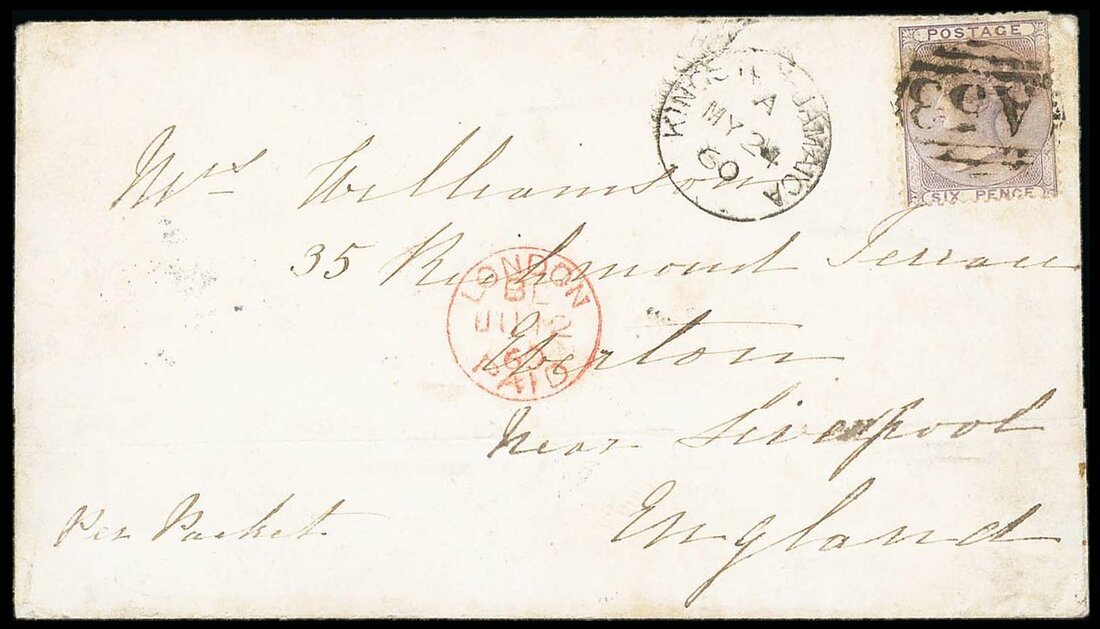 POSTAGE
A53
SIX PENCE
KINGSTON JAMAICA
A
MY 24
60
Mrs Williamson
35 Richmond Terrace
LONDON
JU 12
60
PAID
Everton
Near Liverpool
England
Per Packet.